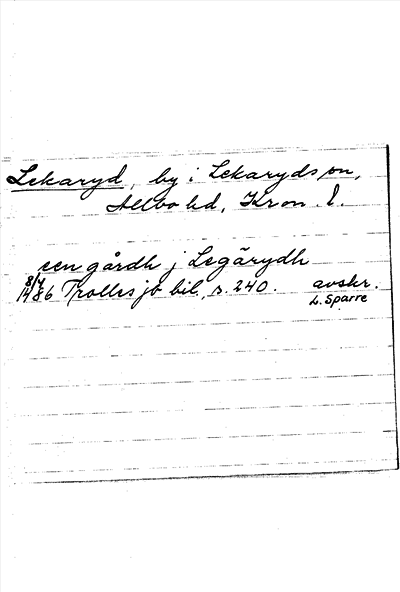 Lekaryd, by i Lekaryds sn,
Allbo hd, Kron. l.
een gårdh j Legärydh
8/4
1486 Trolles jb bil., s. 240. avskr.
L. Sparre